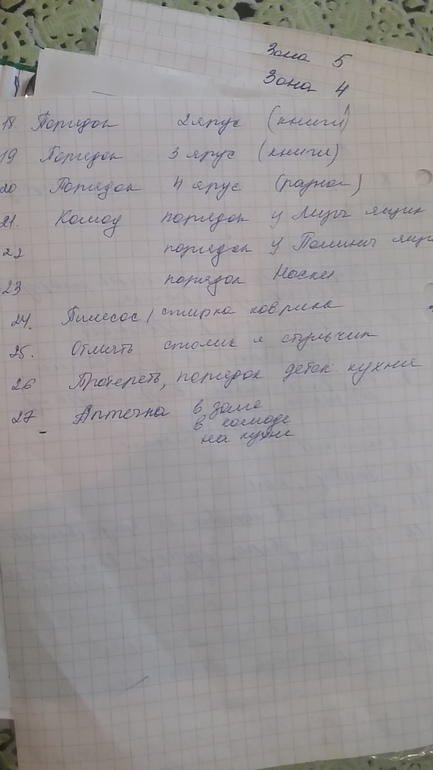 Зона 5
Зона 4
18 Порядок 2 ярус (книги)
19 Порядок 3 ярус (книги)
20 Порядок 4 ярус (разное)
21. Комод порядок у Миры ящик
22 порядок у Полины ящи
23 порядок Носки
24. Пылесос / стирка коврика
25. Отмыть столик и стульчик
26 Протереть, порядок деток кухни
27. Аптечка в зале
в комоде
на кухне